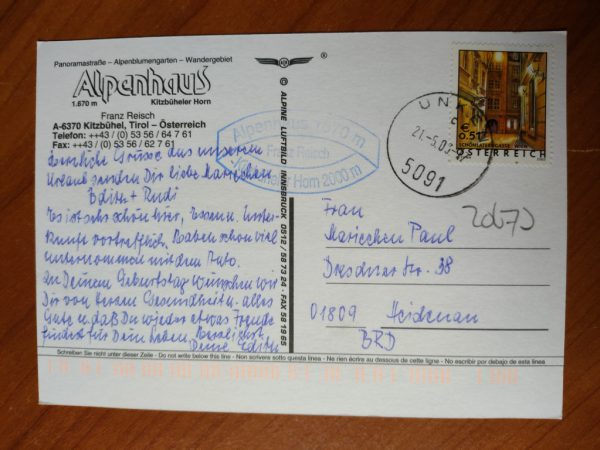 Panoramastraße – Alpenblumengarten – Wandergebiet
Alpenhaus
1.670 m Kitzbüheler Horn
Franz Reisch
A-6370 Kitzbühel, Tirol – Österreich
Telefon: ++43 / (0) 53 56 / 64 7 61
Fax: ++43 / (0) 53 56 / 62 7 61
Herzliche Grüsse aus unserem
Urlaub senden Dir liebe Mariechen
Edith + Rudi
Es ist sehr schön hier, Essen u. Unter-
kunft vortrefflich. Haben schon viel
unternommen mit dem Auto.
Zu Deinem Geburtstag wünschen wir
Dir von Herzen Gesundheit u. alles
Gute u. daß Du wieder etwas Freude
findest für Dein Leben. Herzlichst
Deine Edith
Schreiben Sie nicht unter dieser Zeile - Do not write below this line - Non scrivere sotto questa linea - Ne rien écrire au dessous de cette ligne - No escribir por debajo de esta linea
®
© ALPINE LUFTBILD INNSBRUCK 0512 / 58 73 24 · FAX 58 19 65
Alpenhaus 1670 m
Franz Reisch
Kitzbüheler Horn 2000 m
UNKEN
5091
€ 0,51
SCHÖNLATERNGASSE WIEN
ÖSTERREICH
Frau
Mariechen Paul
Dresdner Str. 38
01809 Heidenau
BRD